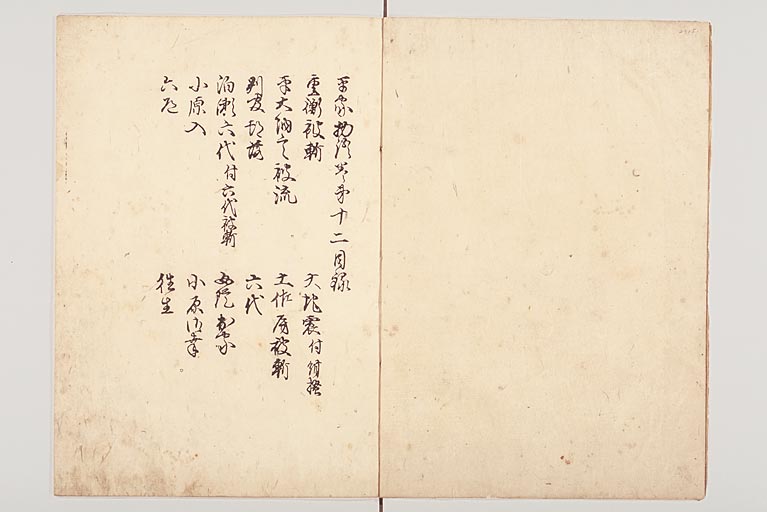 平家物語巻第十二目録
重衡被斬
大地震付紺掻
平大納言被流
土佐房被斬
判官都落
六代
泊瀬六代付六代被斬
女院出家
小原入
小原御幸
六道
往生